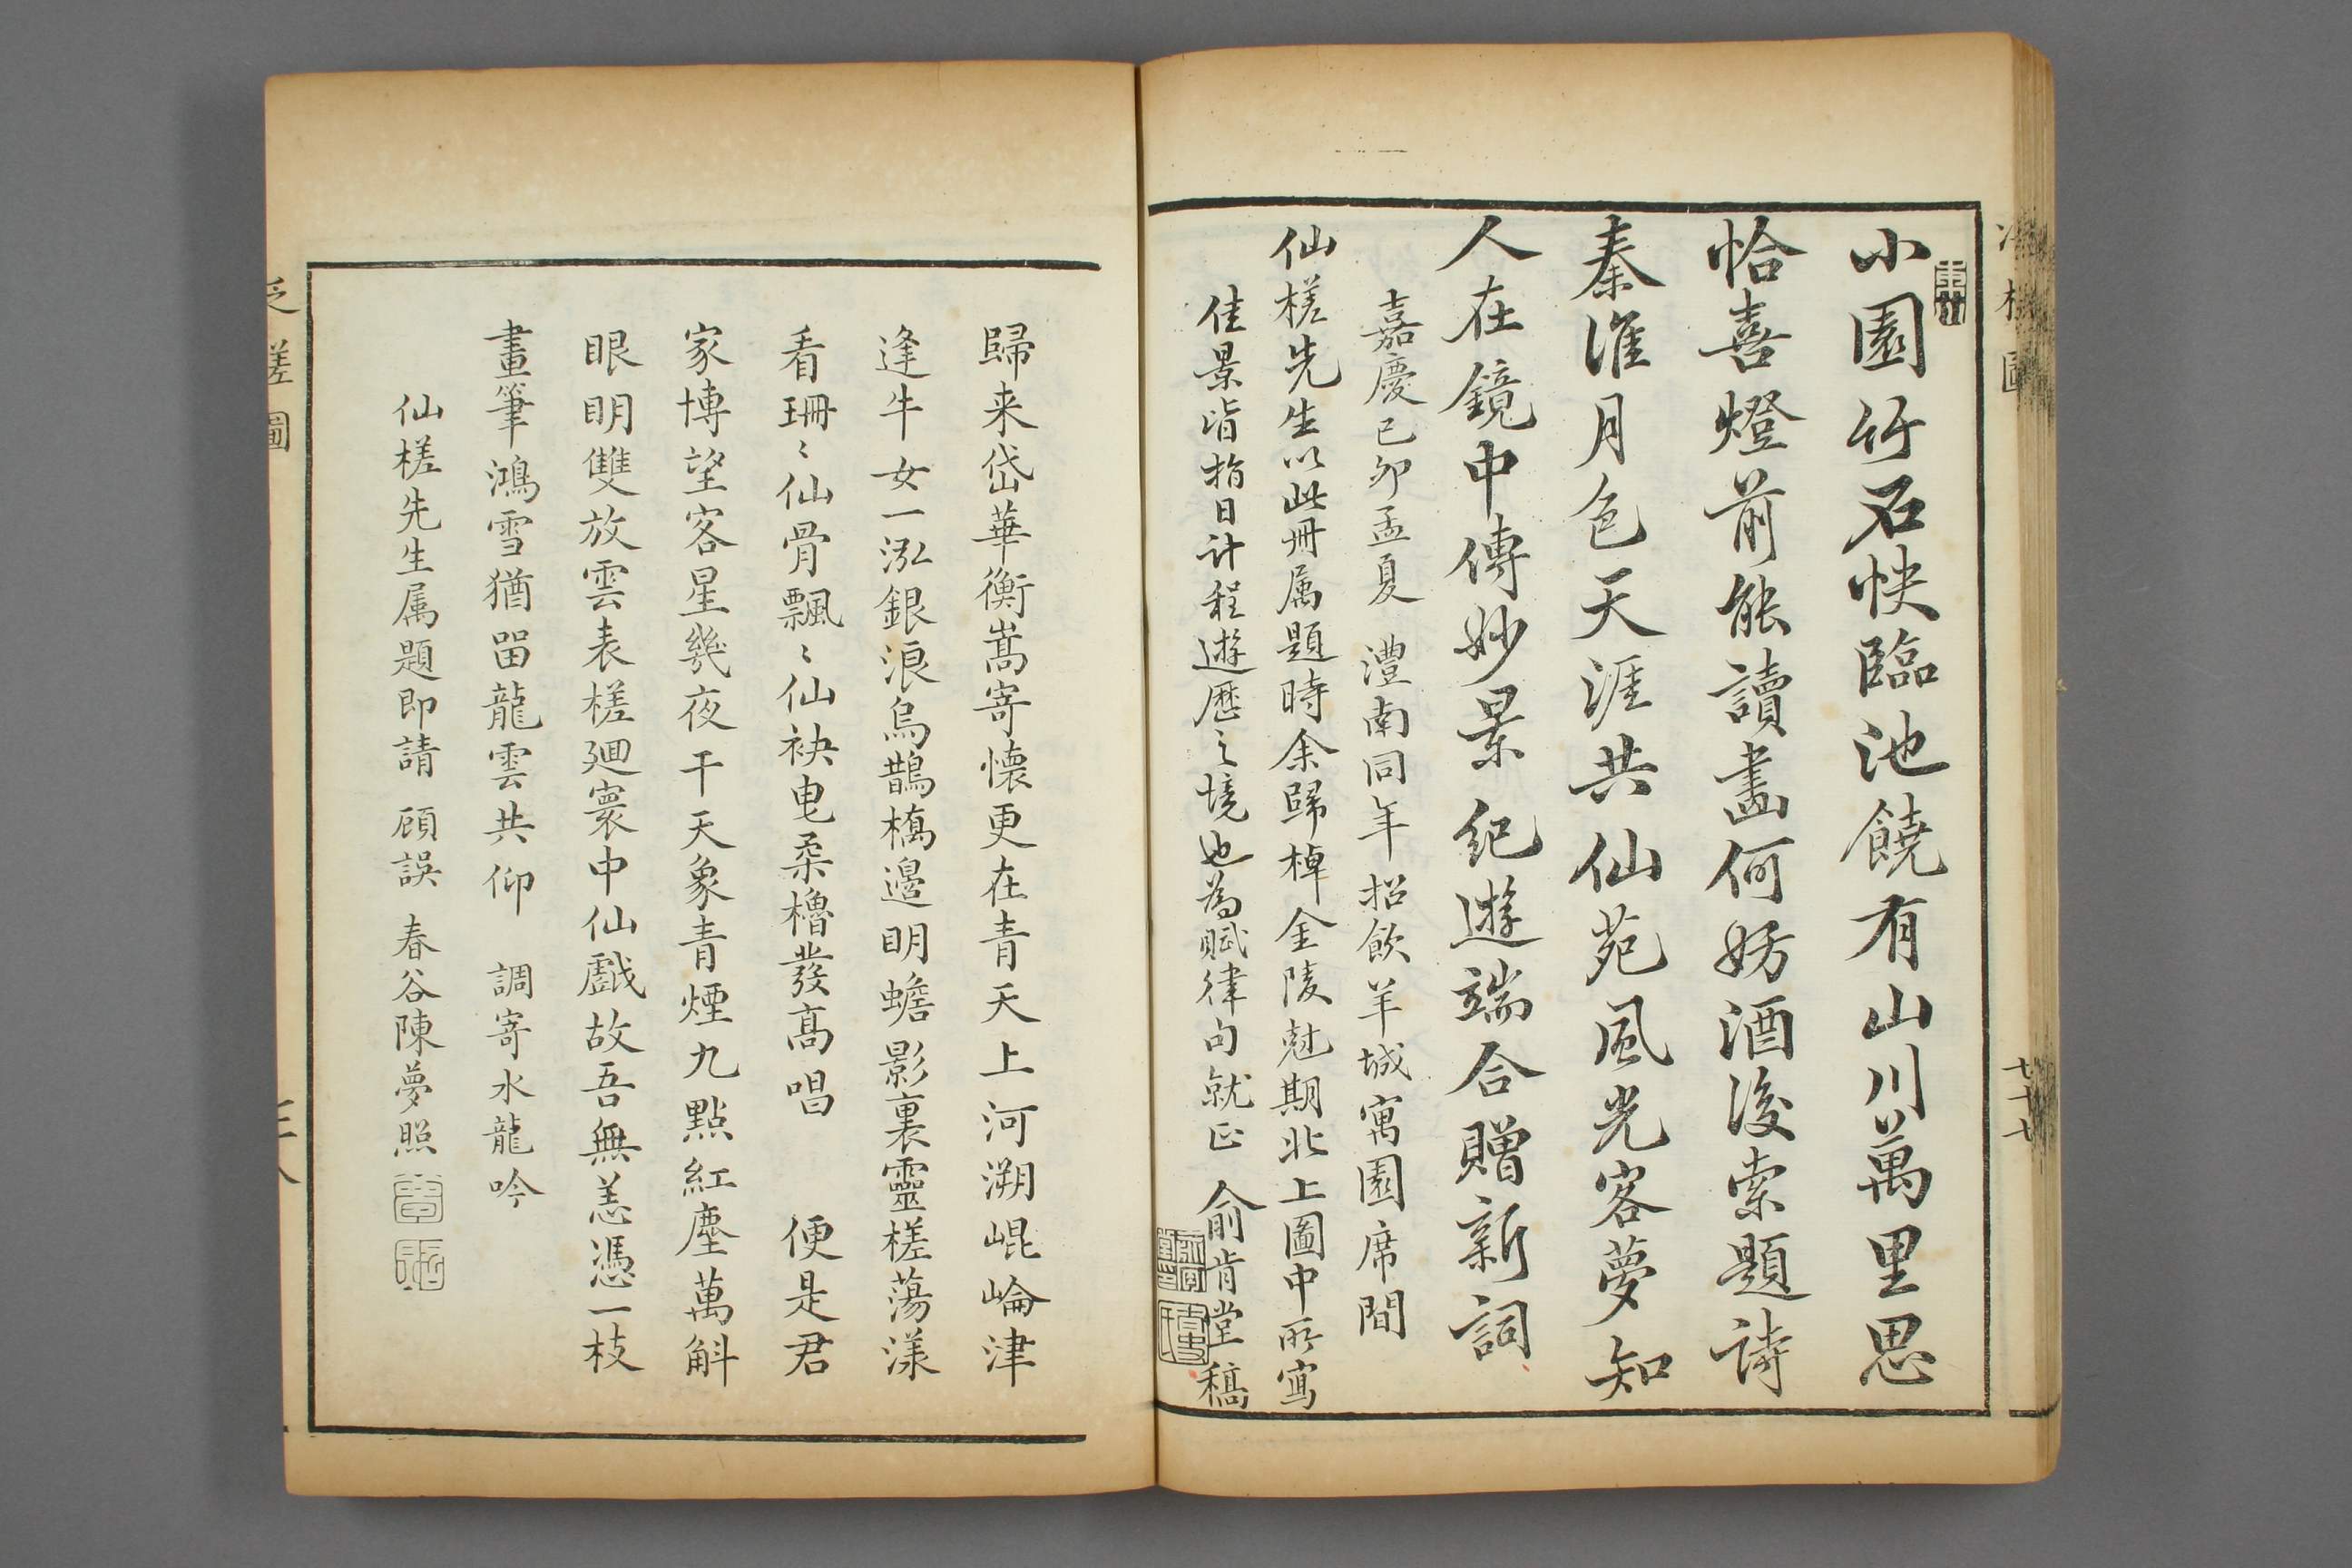 小園竹石快臨池饒有山川萬里思
恰喜燈前能讀畵何妨酒後索題詩
秦淮月色天涯共仙苑風光客夢知
人在鏡中傳妙景紀遊端合贈新詞
嘉慶己卯孟夏 澧南同年招飲羊城寓園席間
仙槎先生以此冊属題時余歸棹金陵尅期北上圖中所寫
佳景皆指日计程遊歷之境也為賦律句就正 俞肯堂稿
歸来岱華衡嵩寄懷更在青天上河溯崐崘津
逢牛女一泓銀浪烏鵲橋邊明蟾影裏靈槎蕩漾
看珊〻仙骨飄〻仙袂电柔櫓發髙唱 便是君
家博望客星幾夜干天象青煙九點紅塵萬斛
眼明雙放雲表槎廻寰中仙戲故吾無恙憑一枝
畫筆鴻雪猶畱龍雲共仰 調寄水龍吟
仙槎先生属題即請 顧誤 春谷陳夢照
槎圖